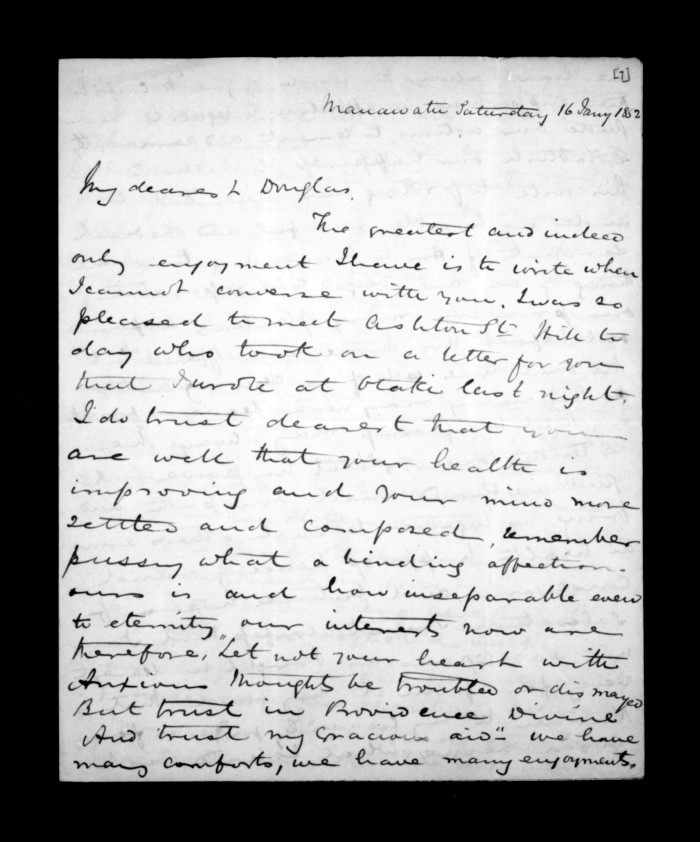 [1]
Manawatu Saturday 16 Jany 1852
My dearest Douglas.
The greatest and indeed
only enjoyment I have is to write when
I cannot converse with you. I was so
pleased to meet Ashton St Hill to
day who took on a letter for you
that I wrote at Otaki last night.
I do trust dearest that you
are well that your health is
improving and your mind more
settled and composed, remember
pussy what a binding affection
ours is and how inseparable even
to eternity our interests now are
therefore, "Let not your heart with
Anxious thoughts be troubled or dismayed
But trust in Providence Divine
And trust my gracious aid" we have
many comforts, we have many enjoyments.